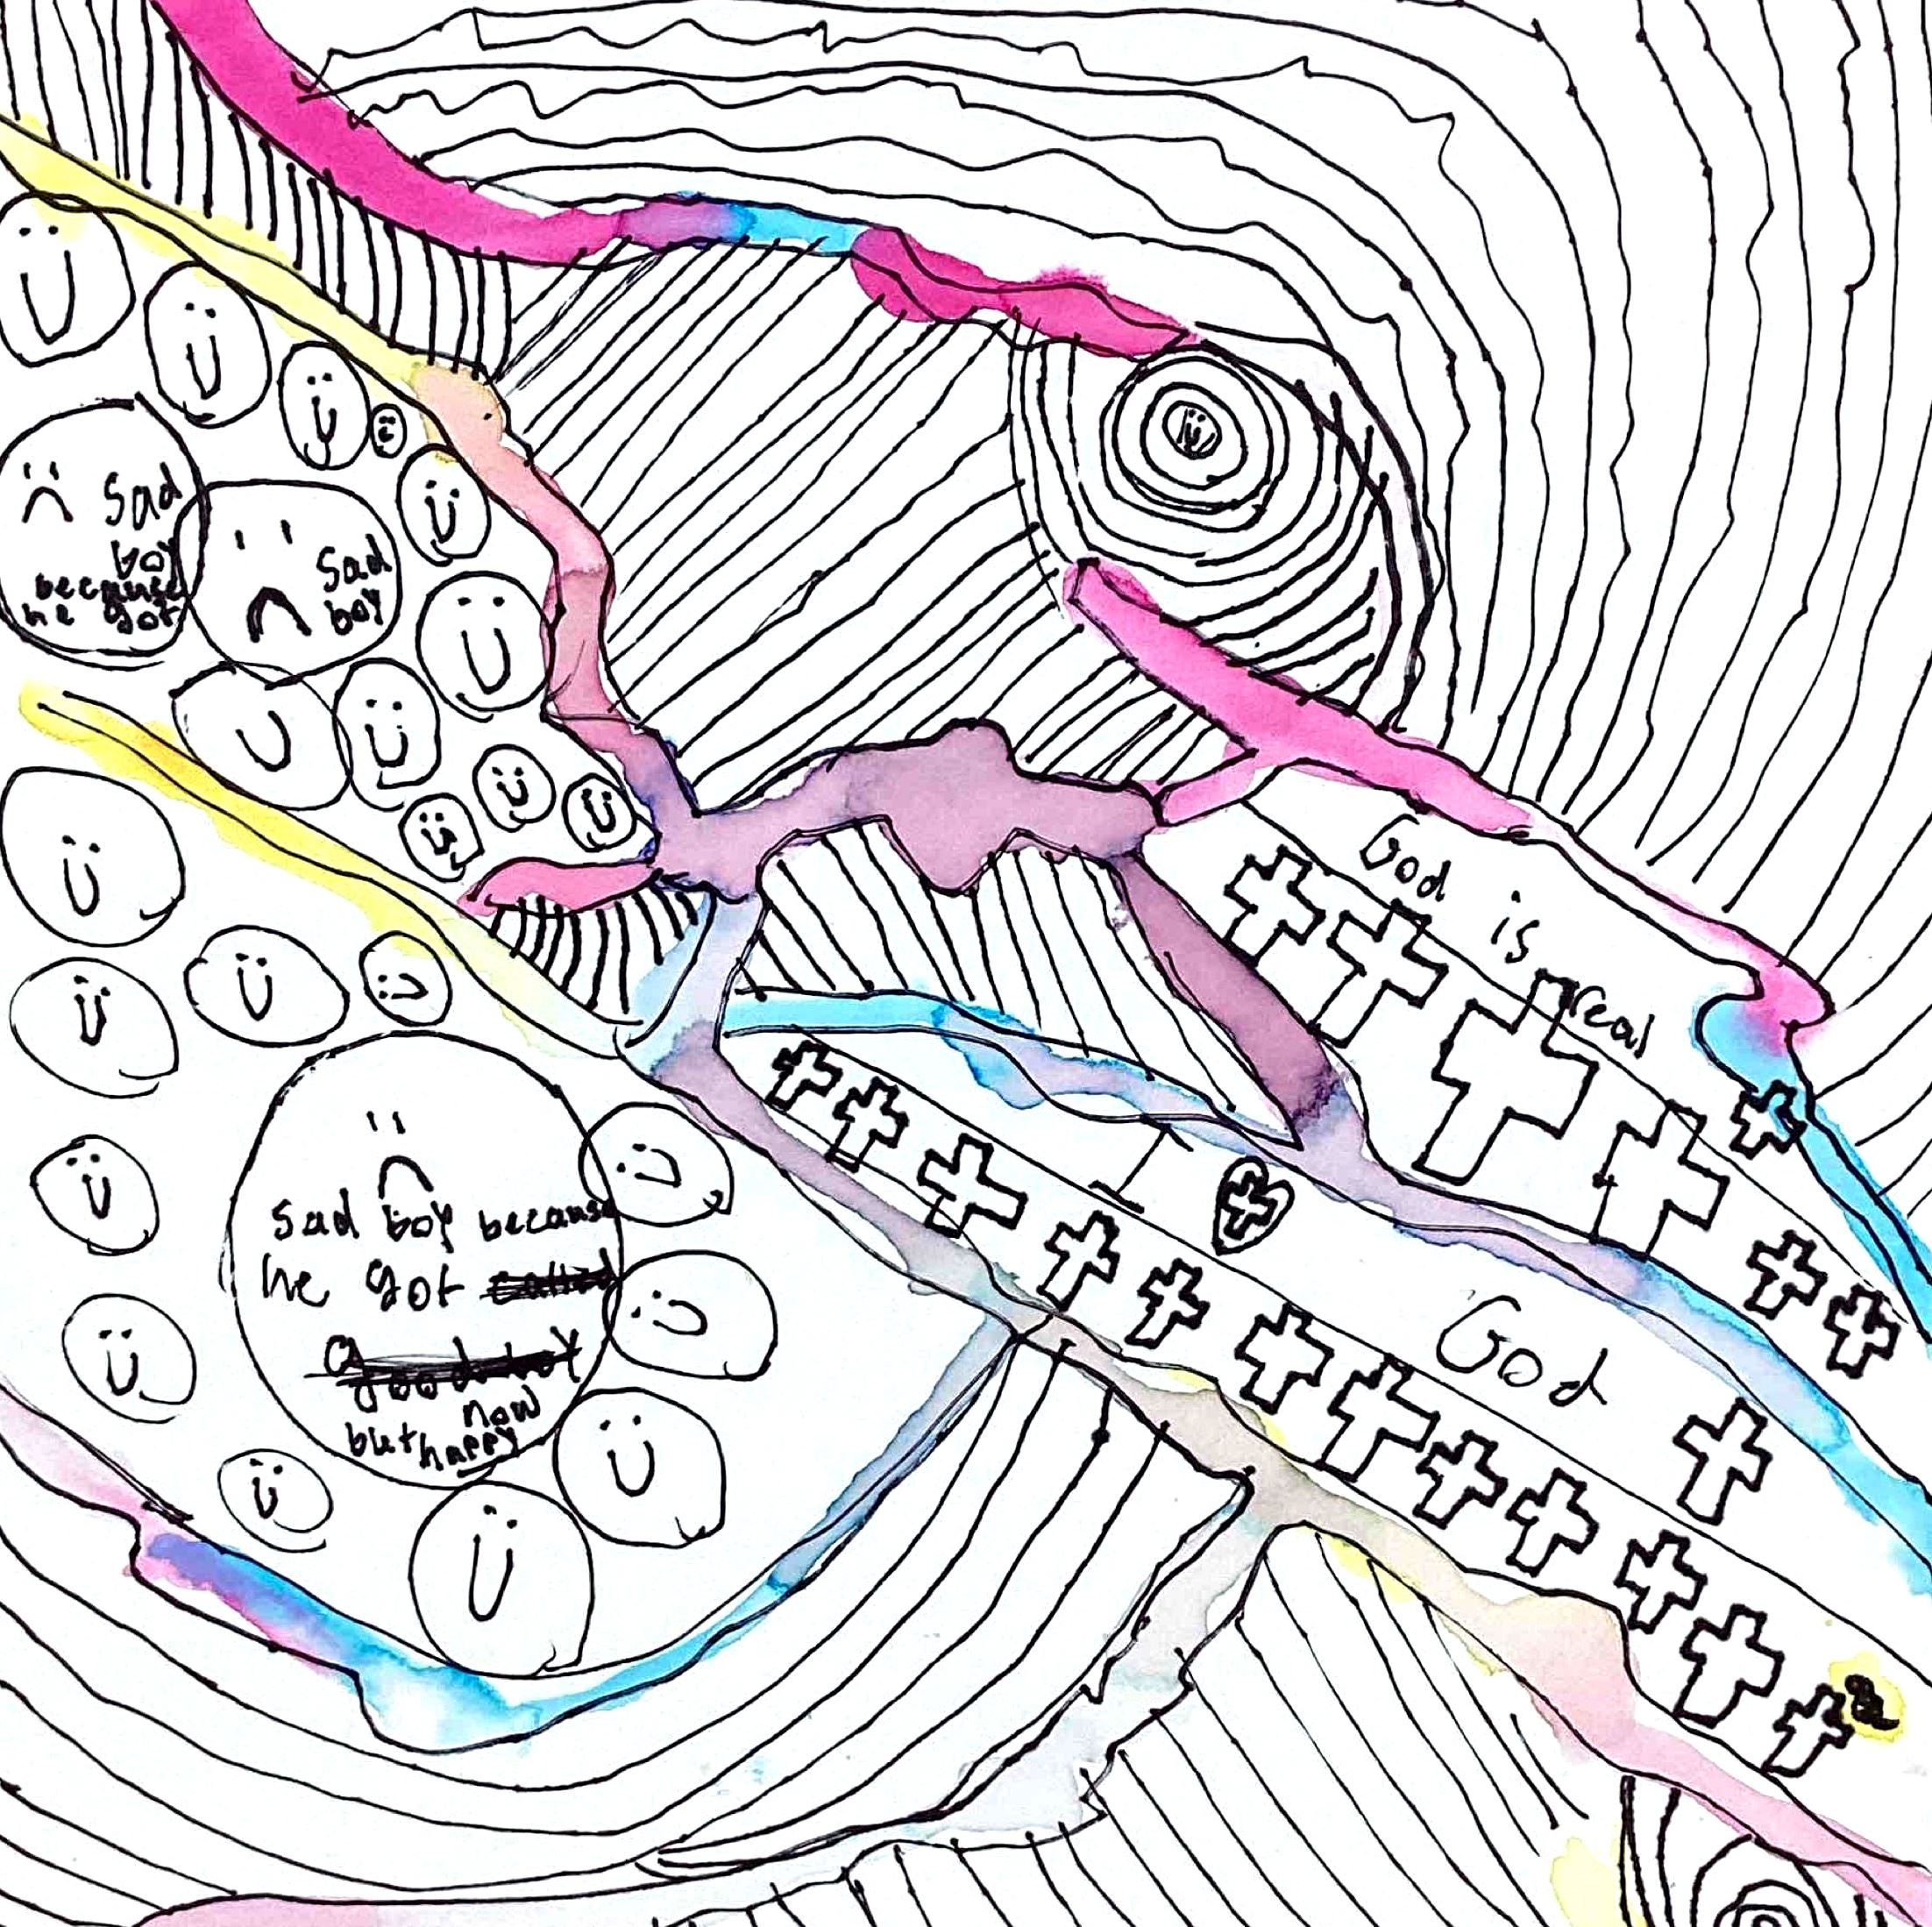 Sad
boy
because
he got
Sad
boy
God
is
real
I
God
Sad boy because
he got
but now
happy